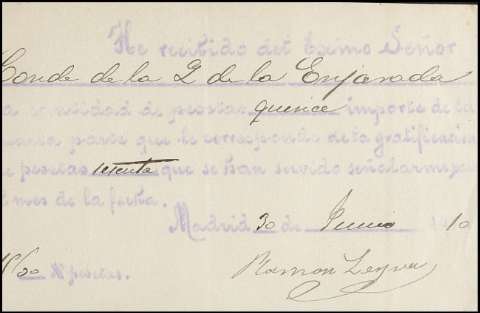 He recibido del Excmo Señor
Conde de la Q de la Enjarada
a cantidad de pesetas quince importe de la
cuarta parte que le corresponde de la gratificación
e pesetas setenta que se han servido señalarme por
l mes de la fecha.
Madrid 30 de Junio 1910
Ptas pesetas.
Ramon Leyva